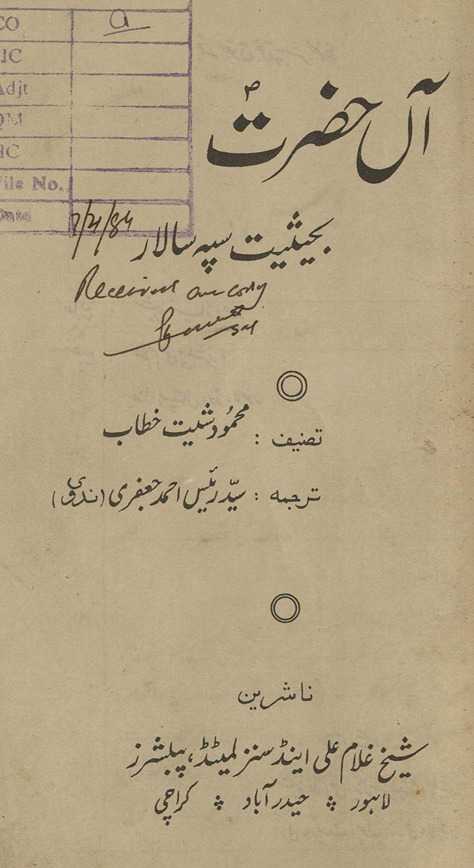 CO a
IC
Adjt
QM
HC
File No.
آں حضرتؐ
بحیثیت سپہ سالار
Received one copy
تصنیف : محمود شیت خطاب
ترجمہ : سیّد رئیس احمد جعفری (ندوی)
ناشرین
شیخ غلام علی اینڈ سنز لمیٹڈ، پبلشرز
لاہور ※ حیدرآباد ※ کراچی